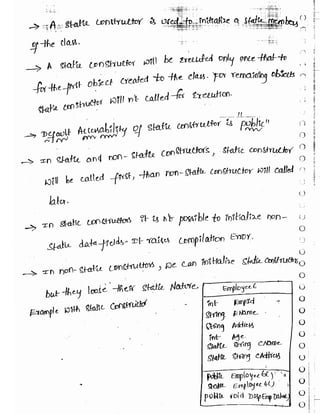 → A static constructor is used to initialise a static members
of the class.
→ A static constructor will be executed only once that to
for the first object created to the class. For remaining objects
static constructor will n't called for execution.
→ Default Accessability of static constructor is public"
→ In static and non-static constructors, static constructor
will be called first, than non-static constructor will called
later.
→ In static constructors it is n't possible to initialize non-
static data-fields. It raises compilation Error.
→ In non-static constructors, we can initialise static constructors
but they loose their static Nature.
Example with static Constructor
Employee6
int EmpId
String EName
String Address
int Age
static string CName
static string CAddress
Public Employee6()
static Employee6()
public void DispEmpData()